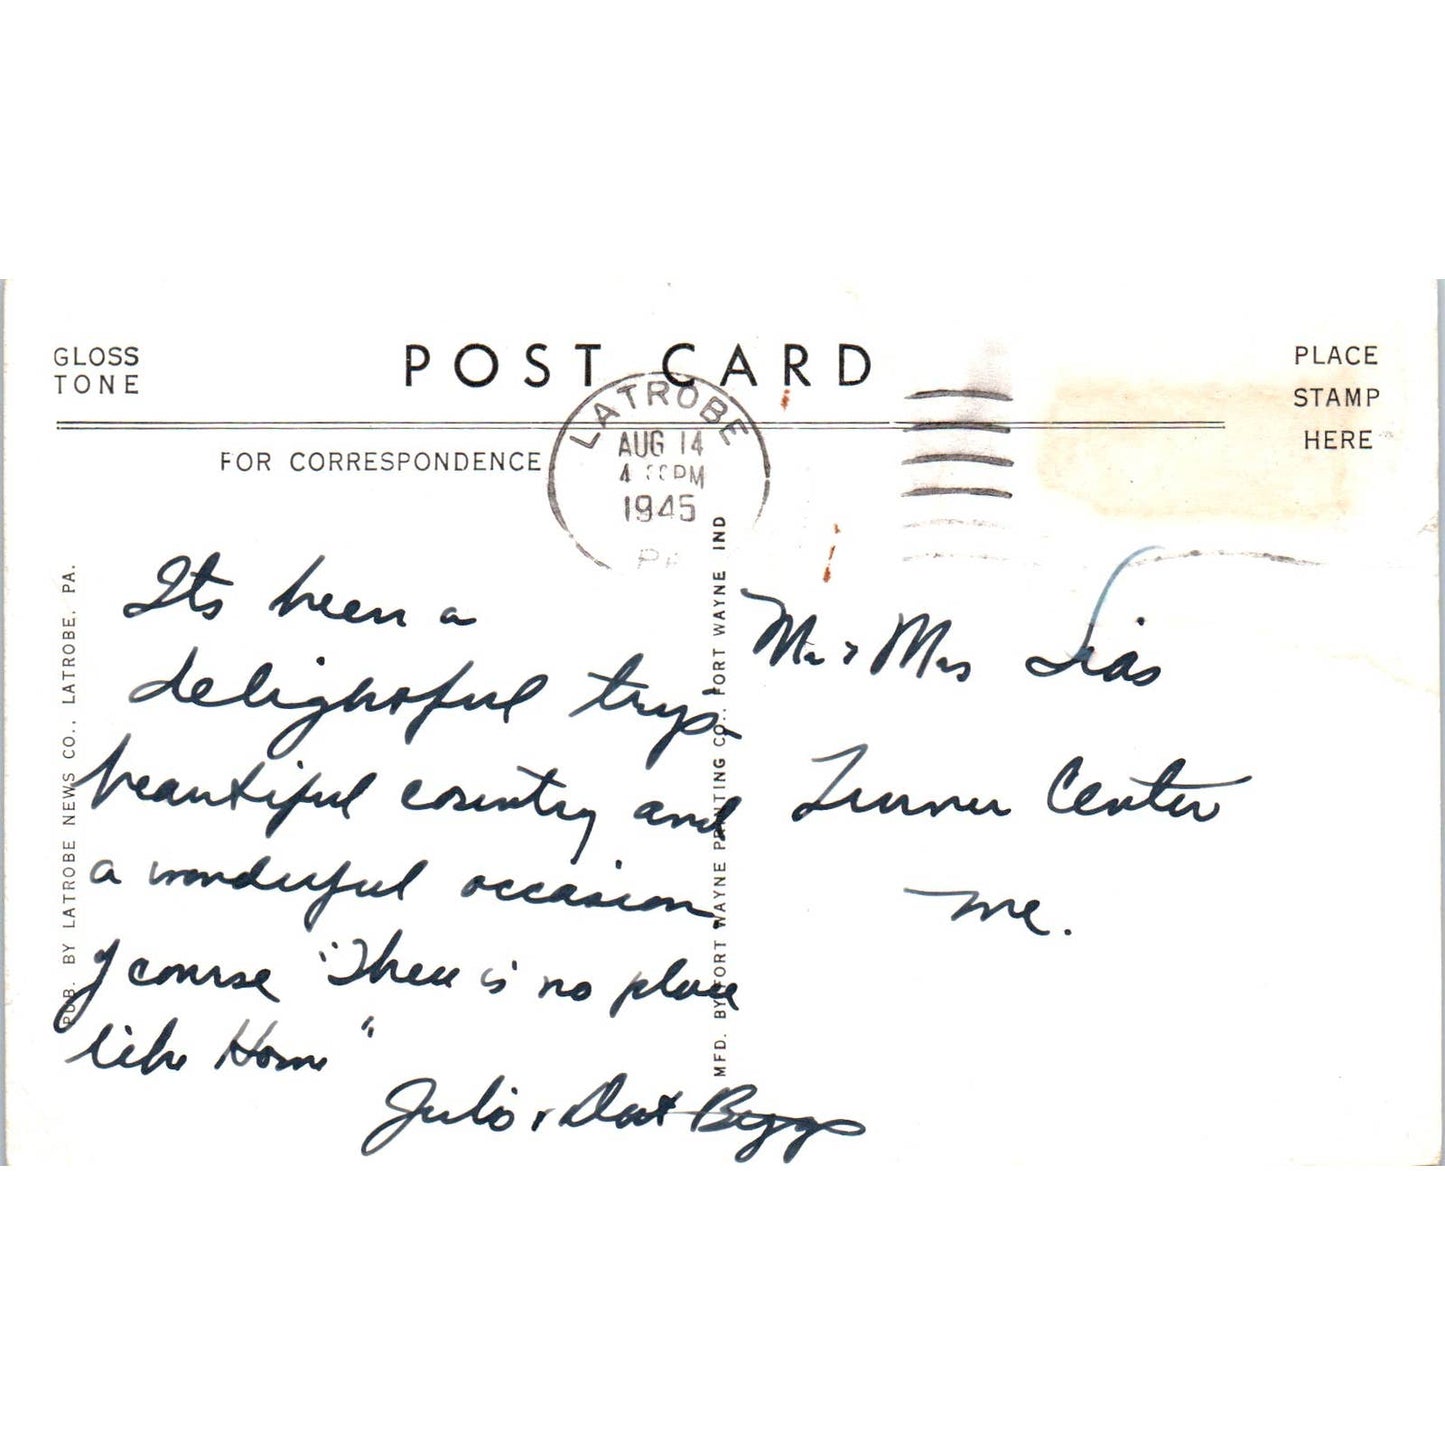 GLOSS
TONE
POST CARD
PLACE
STAMP
HERE
FOR CORRESPONDENCE
LATROBE
AUG 14
4 PM
1945
PA
Its been a
delightful trip
beautiful country and
a wonderful occasion
of course "There is no place
like Home"
Julio + Dot Biggs
Mr + Mrs
Turner Center
Me.
PUB. BY LATROBE NEWS CO., LATROBE, PA.
MFD. BY FORT WAYNE PRINTING CO., FORT WAYNE IND